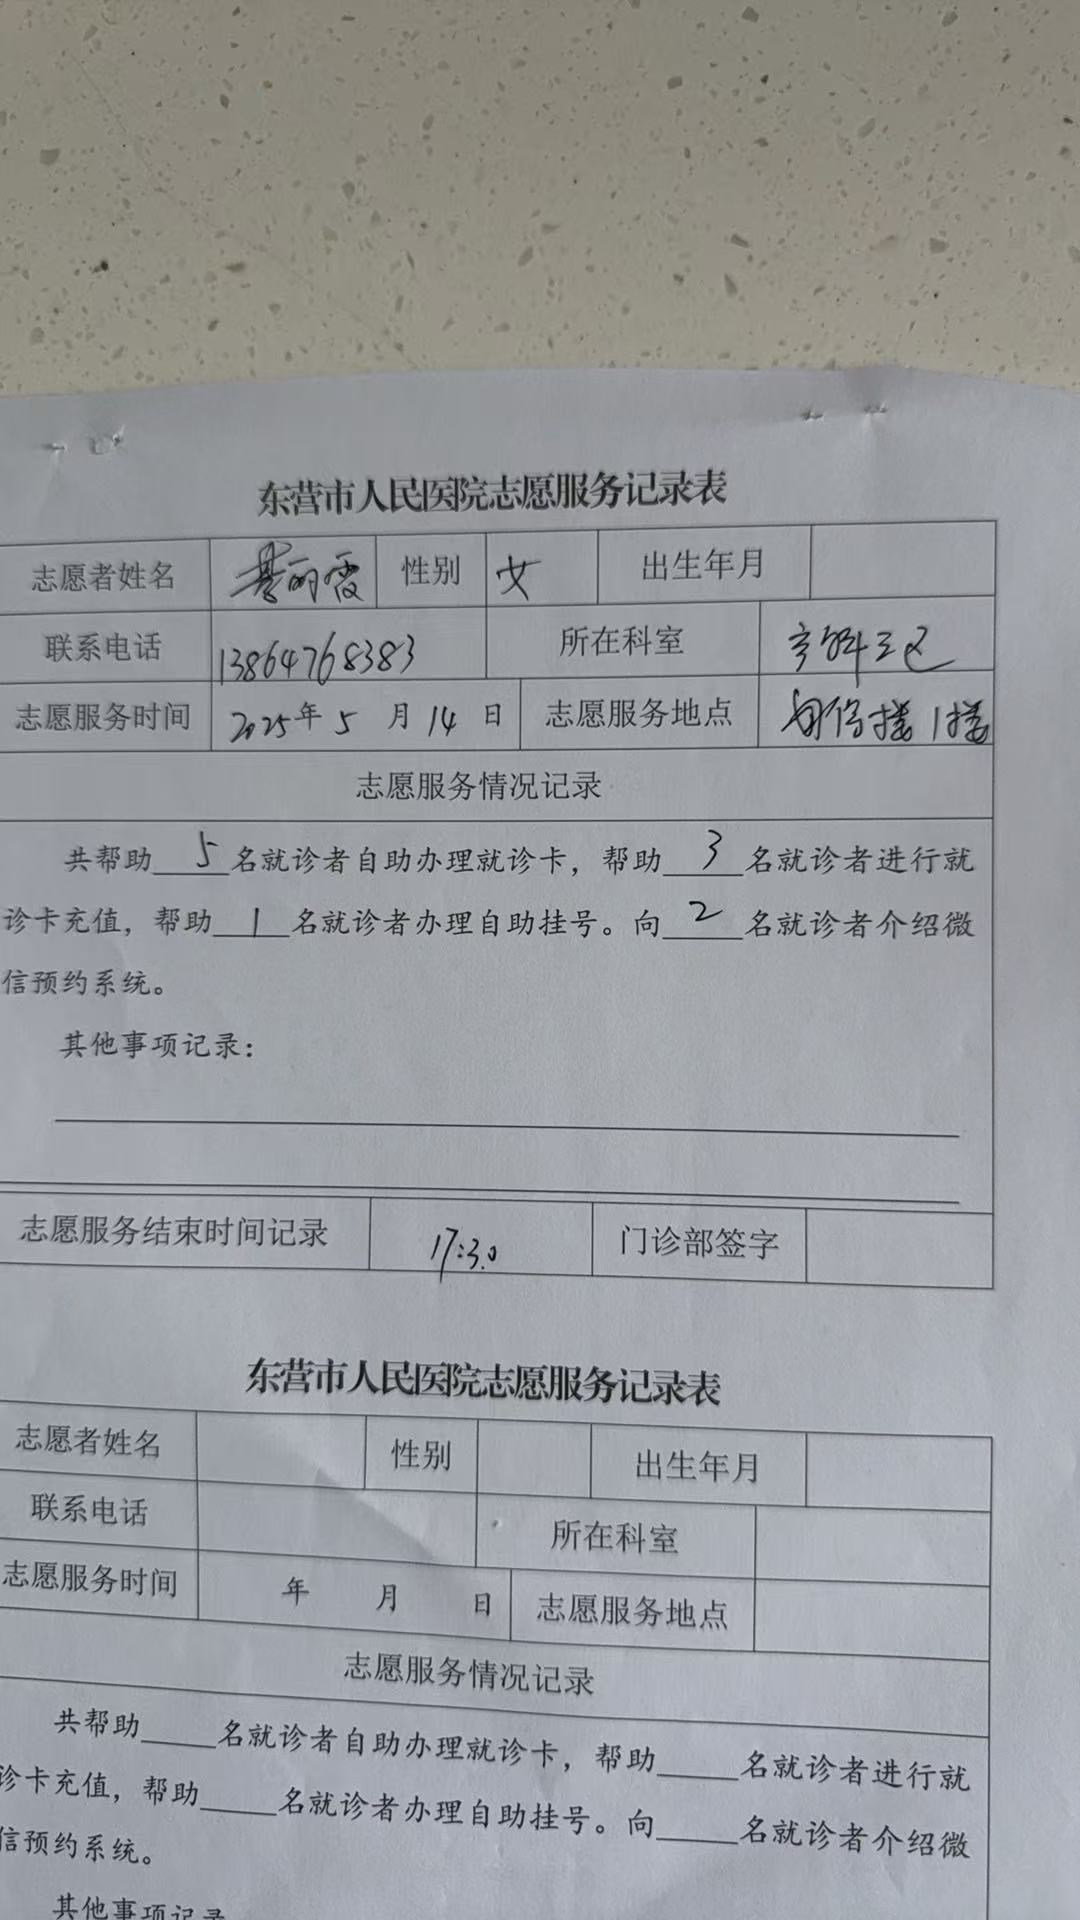 东营市人民医院志愿服务记录表
志愿者姓名 丽霞 性别 女 出生年月
联系电话 13864768383 所在科室 三区
志愿服务时间 2025年5月14日 志愿服务地点 楼1楼
志愿服务情况记录
共帮助5名就诊者自助办理就诊卡，帮助3名就诊者进行就
诊卡充值，帮助1名就诊者办理自助挂号。向2名就诊者介绍微
信预约系统。
其他事项记录：
志愿服务结束时间记录 17:30 门诊部签字
东营市人民医院志愿服务记录表
志愿者姓名 性别 出生年月
联系电话 所在科室
志愿服务时间 年 月 日 志愿服务地点
志愿服务情况记录
共帮助____名就诊者自助办理就诊卡，帮助____名就诊者进行就
诊卡充值，帮助____名就诊者办理自助挂号。向____名就诊者介绍微
信预约系统。
其他事项记录